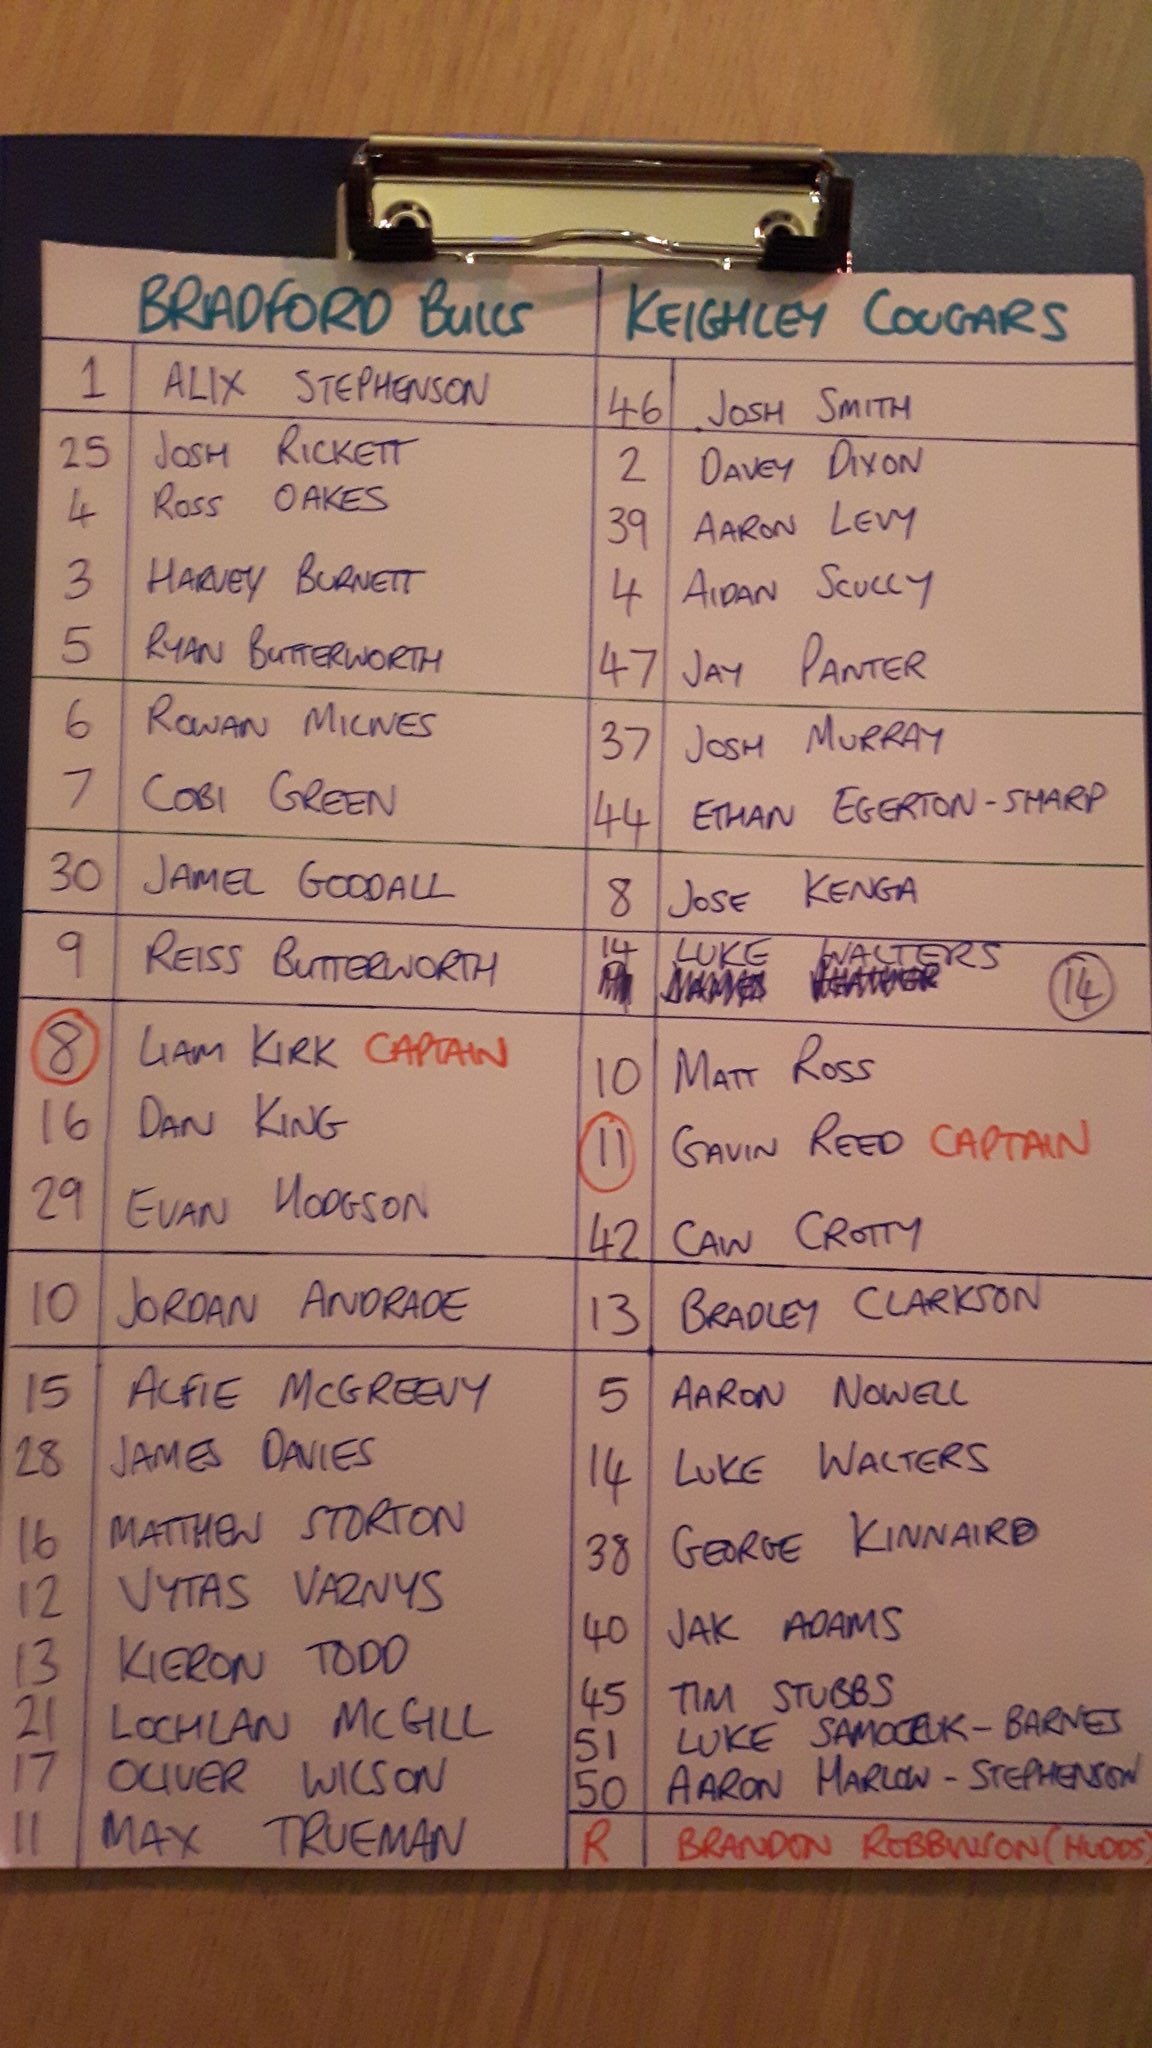 BRADFORD BULLS KEIGHLEY COUGARS
1 ALIX STEPHENSON 46 JOSH SMITH
25 JOSH RICKETT 2 DAVEY DIXON
4 ROSS OAKES 39 AARON LEVY
3 HARVEY BURNETT 4 AIDAN SCULLY
5 RYAN BUTTERWORTH 47 JAY PANTER
6 ROWAN MILNES 37 JOSH MURRAY
7 COBI GREEN 44 ETHAN EGERTON-SHARP
30 JAMEL GOODALL 8 JOSE KENGA
9 REISS BUTTERWORTH 14 LUKE WALTERS
14
8 LIAM KIRK CAPTAIN 10 MATT ROSS
16 DAN KING 11 GAVIN REED CAPTAIN
29 EVAN HODGSON 42 CAW CROTTY
10 JORDAN ANDRADE 13 BRADLEY CLARKSON
15 ALFIE MCGREEVY 5 AARON NOWELL
28 JAMES DAVIES 14 LUKE WALTERS
16 MATTHEW STORTON 38 GEORGE KINNAIRD
12 VYTAS VARNYS 40 JAK ADAMS
13 KIERON TODD 45 TIM STUBBS
21 LOCHLAN MCGILL 51 LUKE SAMOCZUK-BARNES
17 OLIVER WILSON 50 AARON MARLOW-STEPHENSON
11 MAX TRUEMAN R BRANDON ROBBINSON (HUDDS)